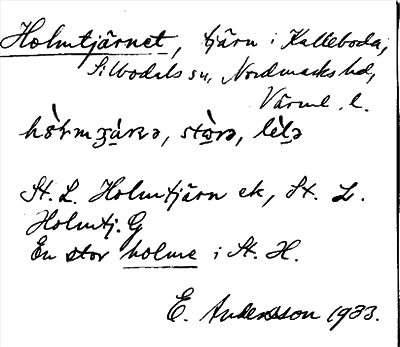 Holmtjärnet, tjärn i Kalleboda,
Silbodals sn, Nordmarks hd,
Värml. l.
stòrə, lìlə
St. L. Holmtjärn ek, St. L.
Holmtj. G
En stor holme i St. H.
E. Andersson 1933.